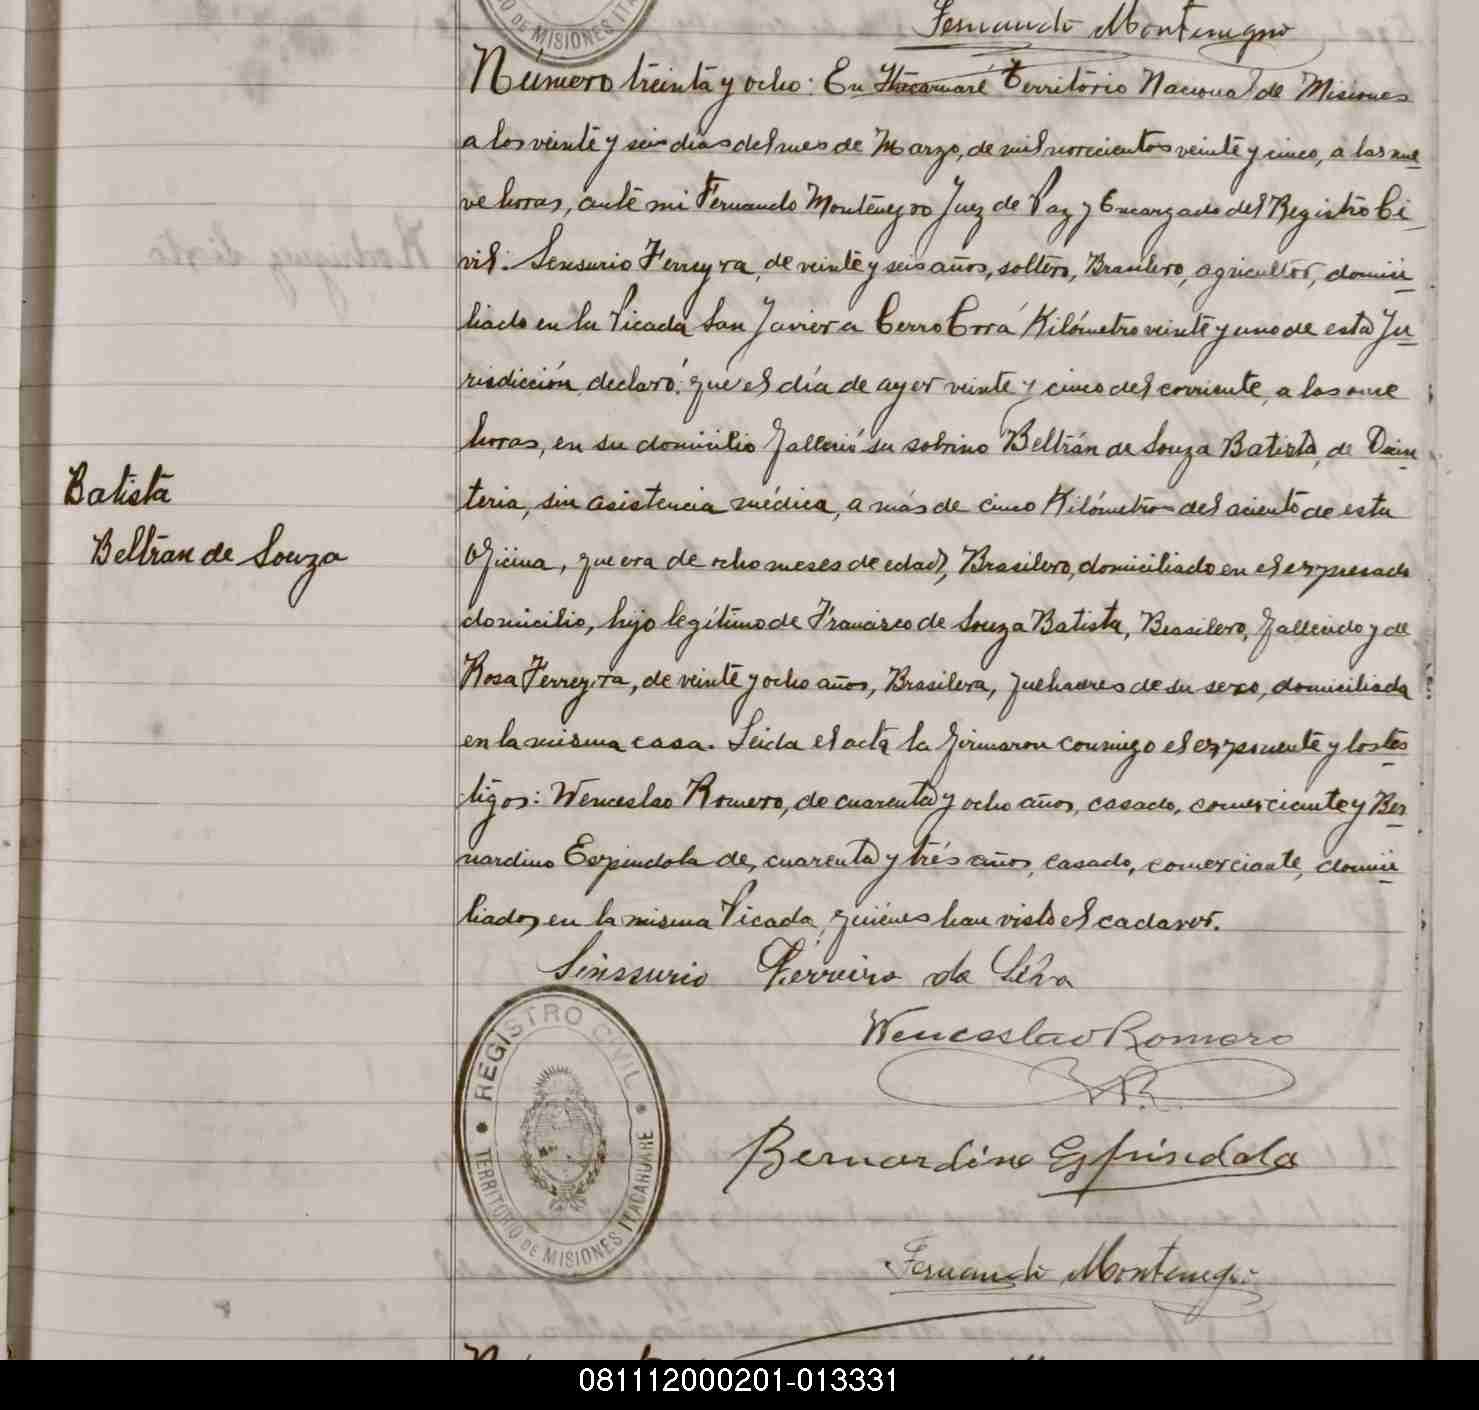 DE MISIONES ITACA
Fernando Montenegro
Número treinta y ocho: En Itacaruaré Territorio Nacional de Misiones
a los veinte y seis dias del mes de Marzo, de mil novecientos veinte y cinco, a las nue-
ve horas, ante mi Fernando Montenegro Juez de Paz y Encargado del Registro Ci-
vil: Sensurio Ferreyra, de veinte y seis años, soltero, Brasilero, agricultor, domici-
liado en la Picada San Javier a Cerro Corá Kilómetro veinte y uno de esta Ju-
risdicción, declaró: que el día de ayer veinte y cinco del corriente, a las once
horas, en su domicilio falleció su sobrino Beltrán de Souza Batista, de Disen-
teria, sin asistencia médica, a más de cinco Kilómetros del asiento de esta
Oficina, que era de ocho meses de edad, Brasilero, domiciliado en el expresado
domicilio, hijo legítimo de Francisco de Souza Batista, Brasilero, fallecido y de
Rosa Ferreyra, de veinte y ocho años, Brasilera, quehaceres de su sexo, domiciliada
en la misma casa. Leida el acta la firmaron conmigo el exponente y los tes-
tigos: Wenceslao Romero, de cuarenta y ocho años, casado, comerciante y Ber-
nardino Espindola de, cuarenta y trés años, casado, comerciante, domici-
liados en la misma Picada, quiénes han visto el cadaver.
Batista
Beltrán de Souza
Sinssurio Ferreira da Silva
Wenceslao Romero
Bernardino Espindola
Fernando Montenegro
REGISTRO CIVIL
TERRITORIO DE MISIONES ITACARUARE
081112000201-013331